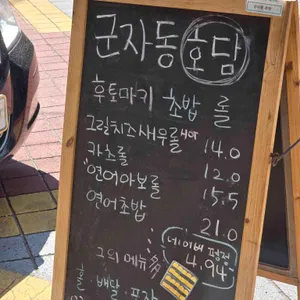 군자동 호담
후토마키 초밥 롤
그릴치즈새우롤 HOT 14.0
카츠롤 12.0
연어아보롤 15.5
연어초밥 21.0
네이버 평점
4.94
그외 메뉴 多
배달·포장